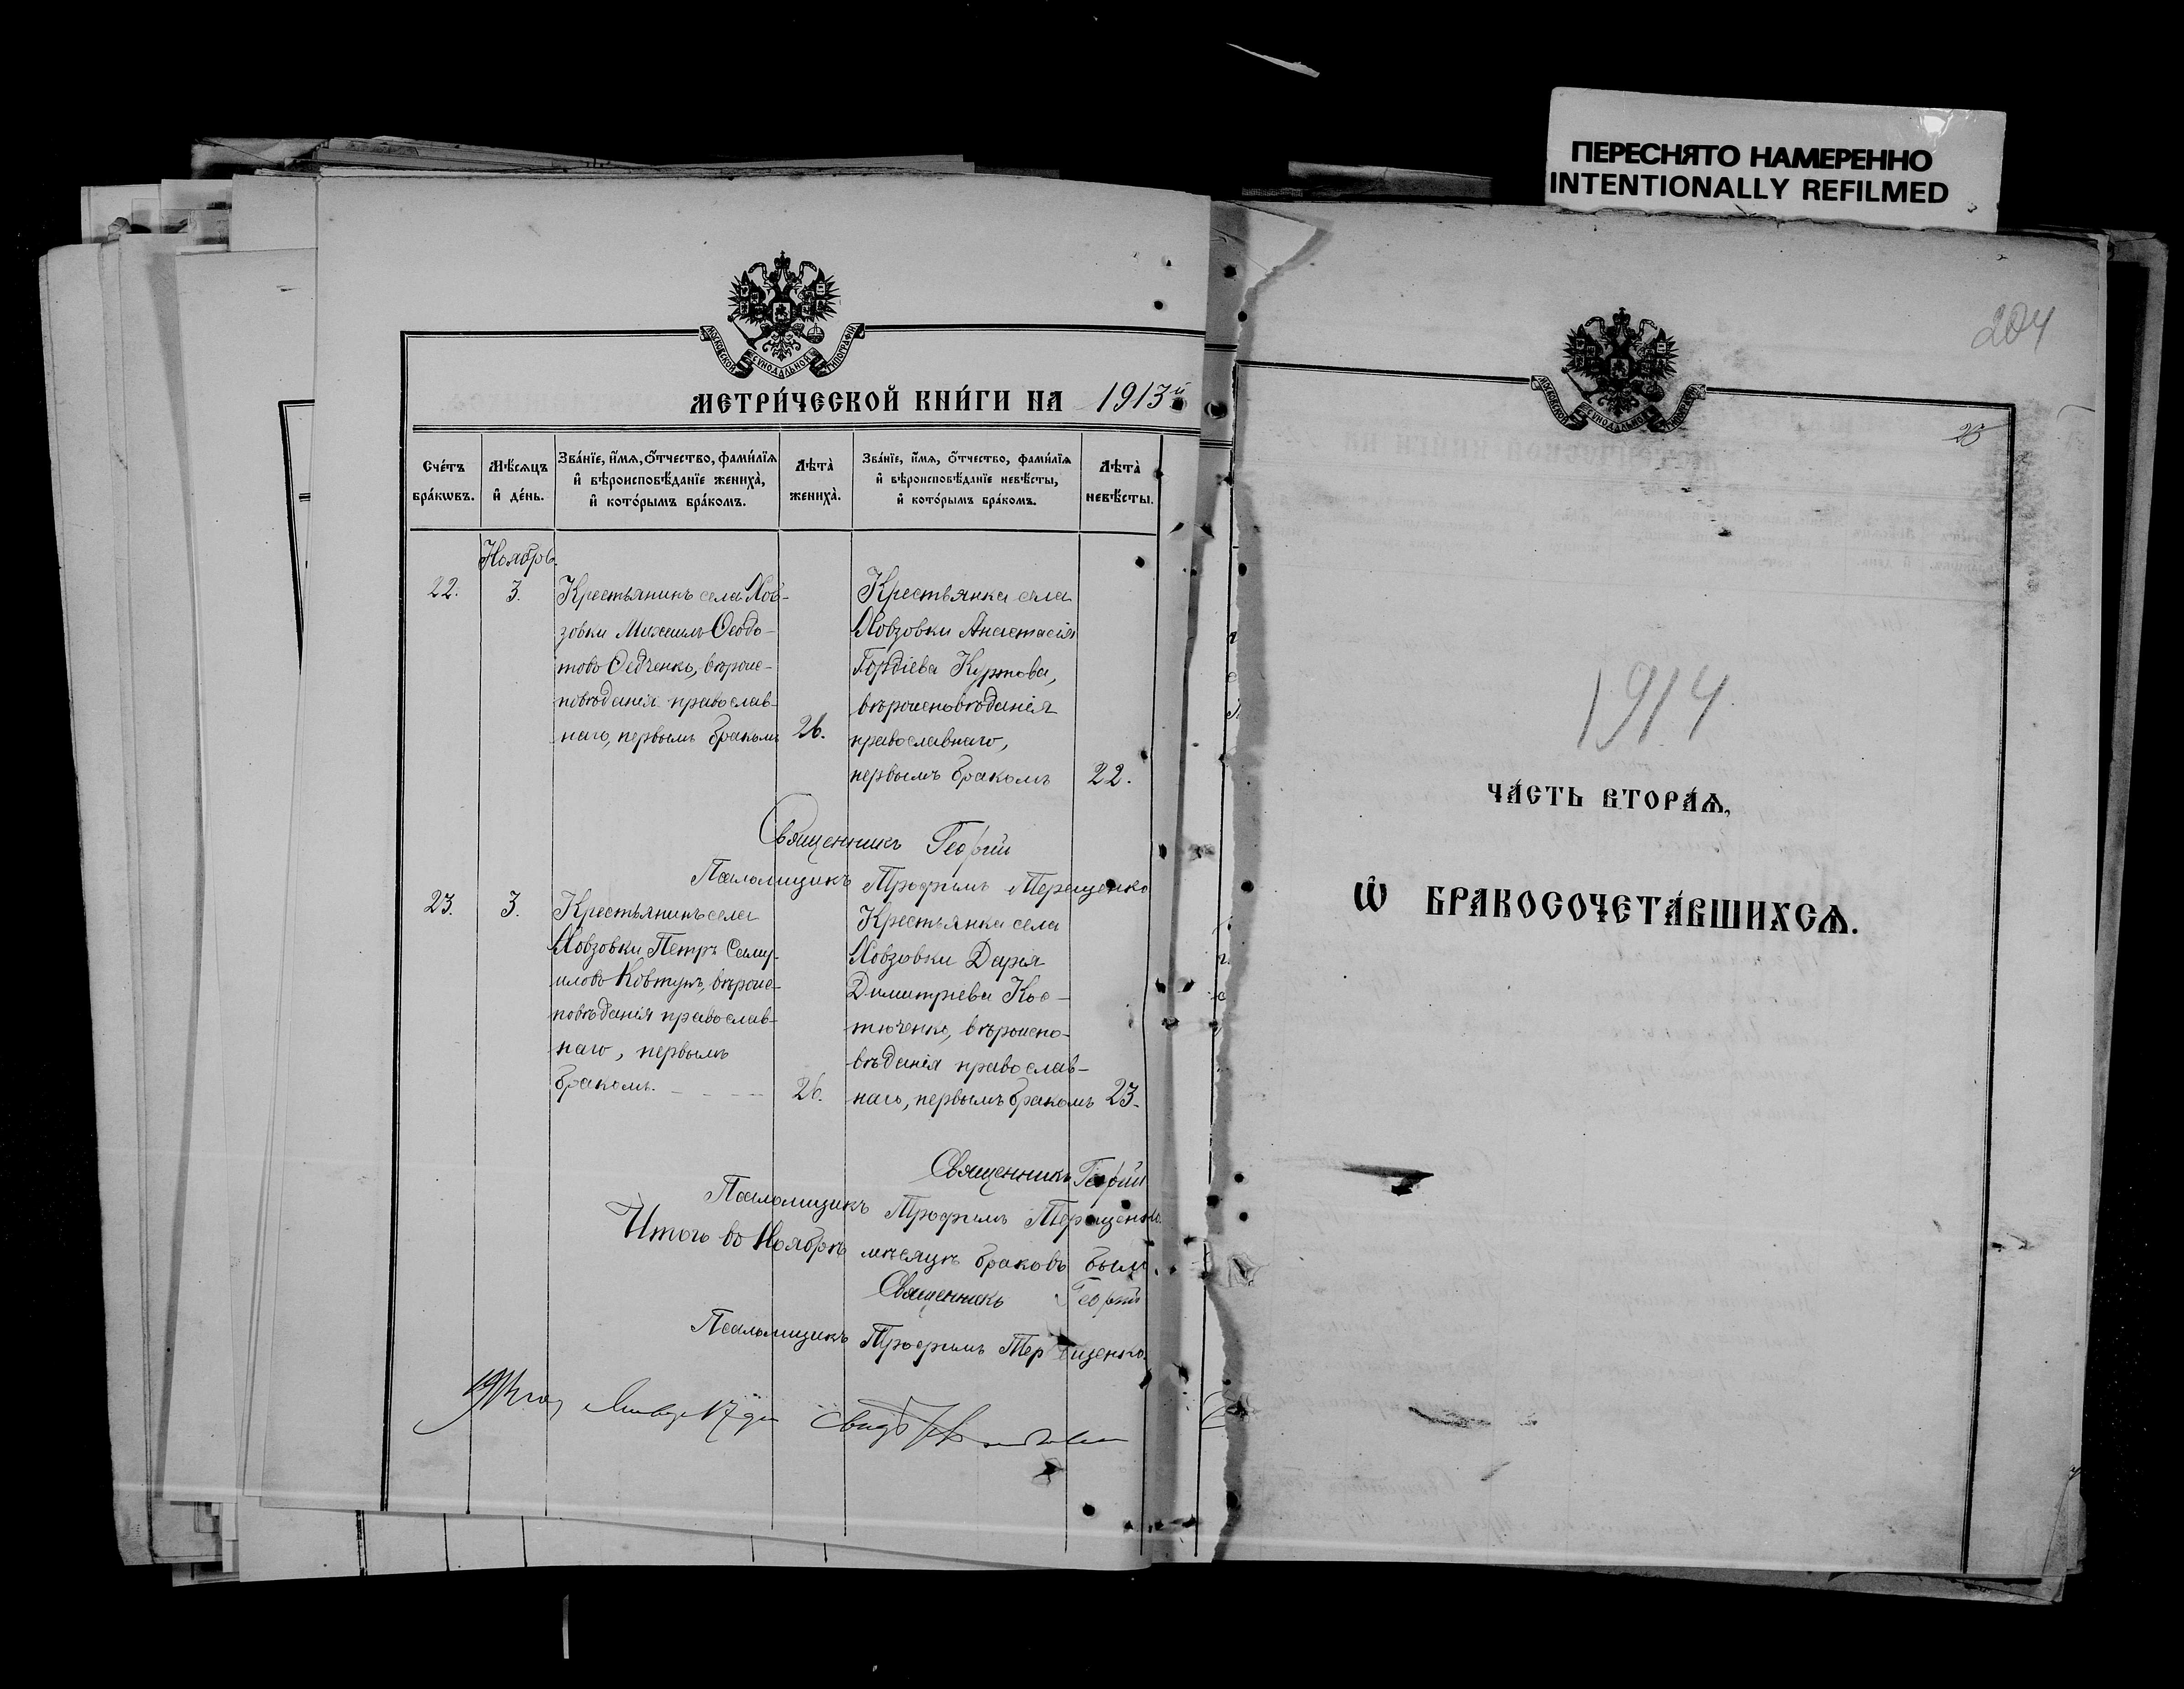 ПЕРЕСНЯТО НАМЕРЕННО
INTENTIONALLY REFILMED
МОСКОВСКОЙ СѴНОДАЛЬНОЙ ТИПОГРАФІИ
МЕТРИ́ЧЕСКОЙ КНИ́ГИ НА 1913й
Сче́тъ бра́кωвъ.
Мѣ́сяцъ и҆ де́нь.
Зва́нїе, и҆́мя, ѻ҆́тчество, фами́лїя и҆ вѣроисповѣ́данїе жениха̀, и҆ кото́рымъ бра́комъ.
Лѣта̀ жениха̀.
Зва́нїе, и҆́мя, ѻ҆́тчество, фами́лїя и҆ вѣроисповѣ́данїе невѣ́сты, и҆ кото́рымъ бра́комъ.
Лѣта̀ невѣ́сты.
Ноябрь
22.
3.
Крестьянинъ села Хов-
зовки Михаилъ Ѳеодо-
товъ Ѳедченко, вѣроис-
повѣданія православ-
наго, первымъ бракомъ
26.
Крестьянка села
Ховзовки Анастасія
Гордіева Куртова,
вѣроисповѣданія
православнаго,
первымъ бракомъ
22.
Священникъ Георгій
Псаломщикъ Трофимъ Терещенко
23.
3.
Крестьянинъ села
Ховзовки Петръ Саму-
иловъ Ковтунъ, вѣроис-
повѣданія православ-
наго, первымъ
бракомъ.
26.
Крестьянка села
Ховзовки Дарія
Димитріева Кос-
тюченко, вѣроиспо-
вѣданія православ-
наго, первымъ бракомъ
23.
Священникъ Георгій
Псаломщикъ Трофимъ Терещенко.
Итого въ Ноябрѣ мѣсяцѣ браковъ было
Священникъ Георгій
Псаломщикъ Трофимъ Терещенко.
204
МОСКОВСКОЙ СѴНОДАЛЬНОЙ ТИПОГРАФІИ
1914
ЧА́СТЬ ВТОРА́Ѧ,
Ѡ҆ БРАКОСОЧЕТА́ВШИХСѦ.